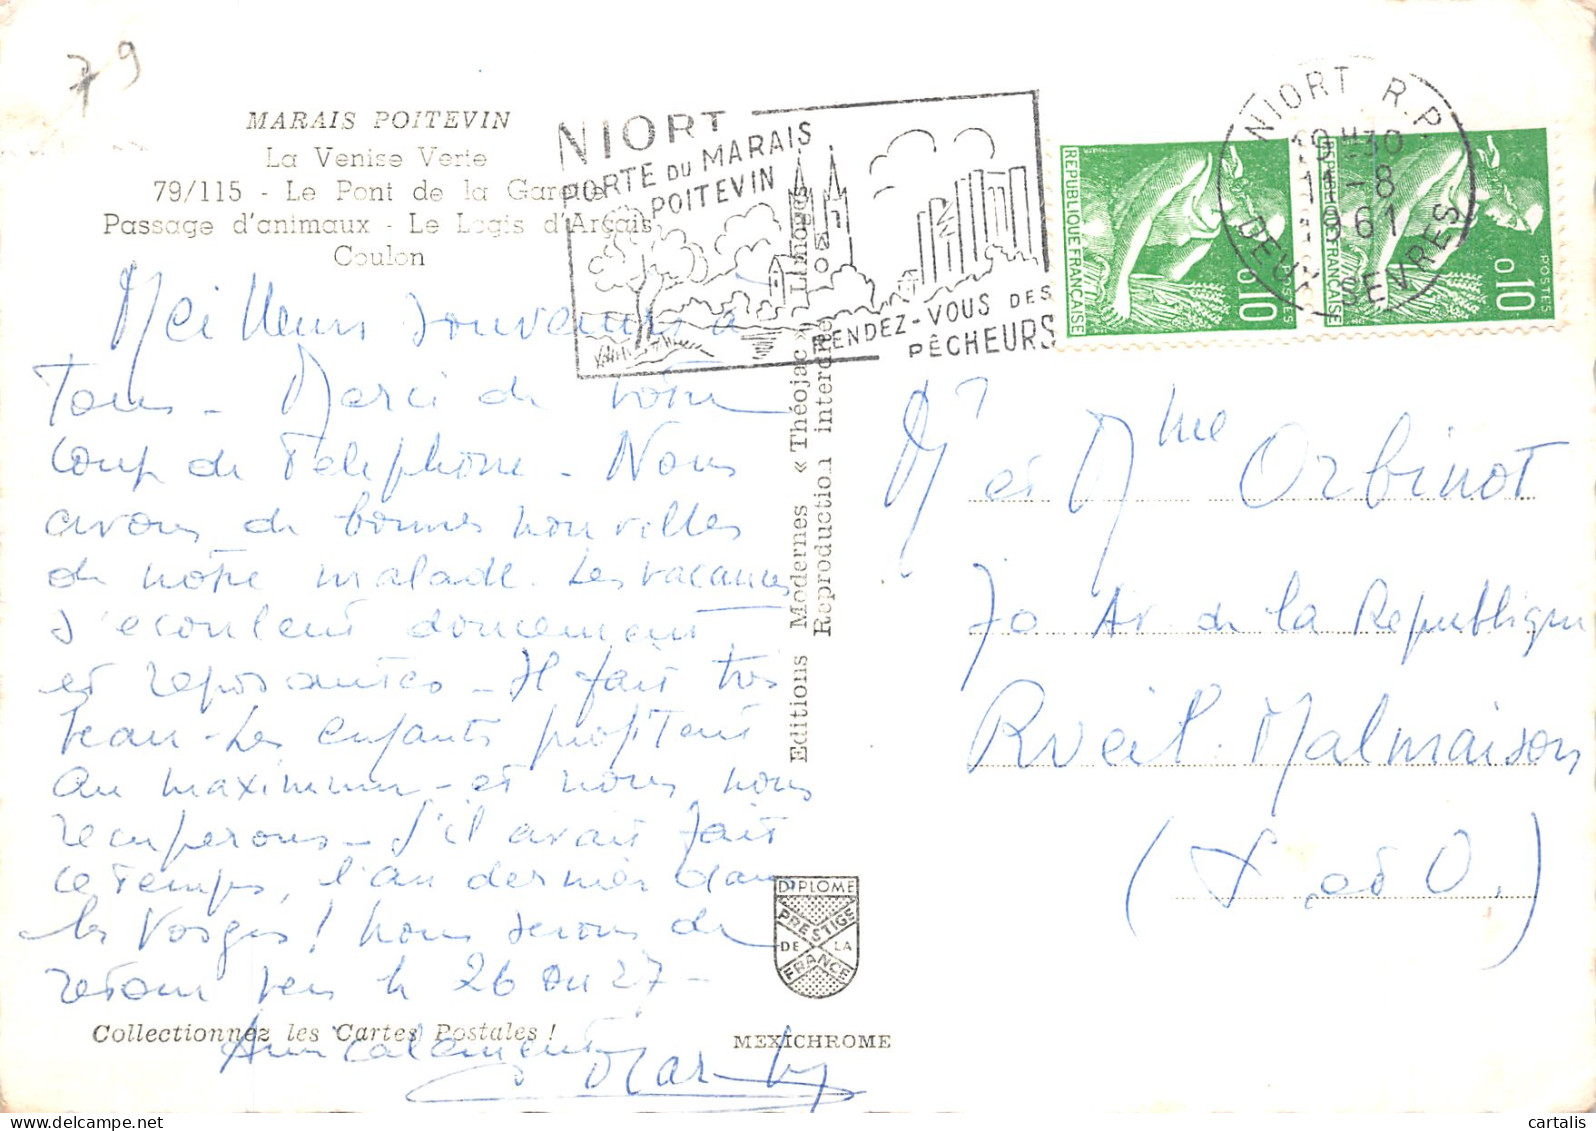 79
MARAIS POITEVIN
La Venise Verte
79/115 - Le Pont de la Garette
Passage d'animaux - Le Logis d'Arçais
Coulon
NIORT
PORTE DU MARAIS
POITEVIN
RENDEZ-VOUS DES
PÊCHEURS
NIORT R.P.
19H30
11-8
1961
DEUX SEVRES
REPUBLIQUE FRANÇAISE
0,10
POSTES
REPUBLIQUE FRANÇAISE
0,10
POSTES
Meilleurs souvenirs à
Tous - Merci de votre
coup de Téléphone - Nous
avons de bonnes nouvelles
de notre malade. Les vacances
s'écoulent doucement
et reposantes - Il fait très
beau - Les enfants profitent
au maximum - et nous nous
récupérons - S'il avait fait
ce Temps, l'an dernier dans
les Vosges ! Nous serons de
retour vers le 26 ou 27 -
Amicalement
Editions Modernes « Théojac » Limoges
Reproduction interdite
DIPLOME
PRESTIGE
DE LA
FRANCE
Collectionnez les Cartes Postales !
MEXICHROME
Mr et Mme Orbinot
70 Av. de la Republique
Rueil-Malmaison
(S. et O.)
cartalis